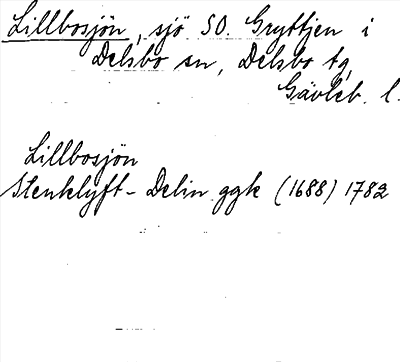 Lillbosjön, sjö SO. Gryttjen i
Delsbo sn, Delsbo tg,
Gävleb. l.
Lillbosjön
Stenklyft - Delin ggk (1688) 1782